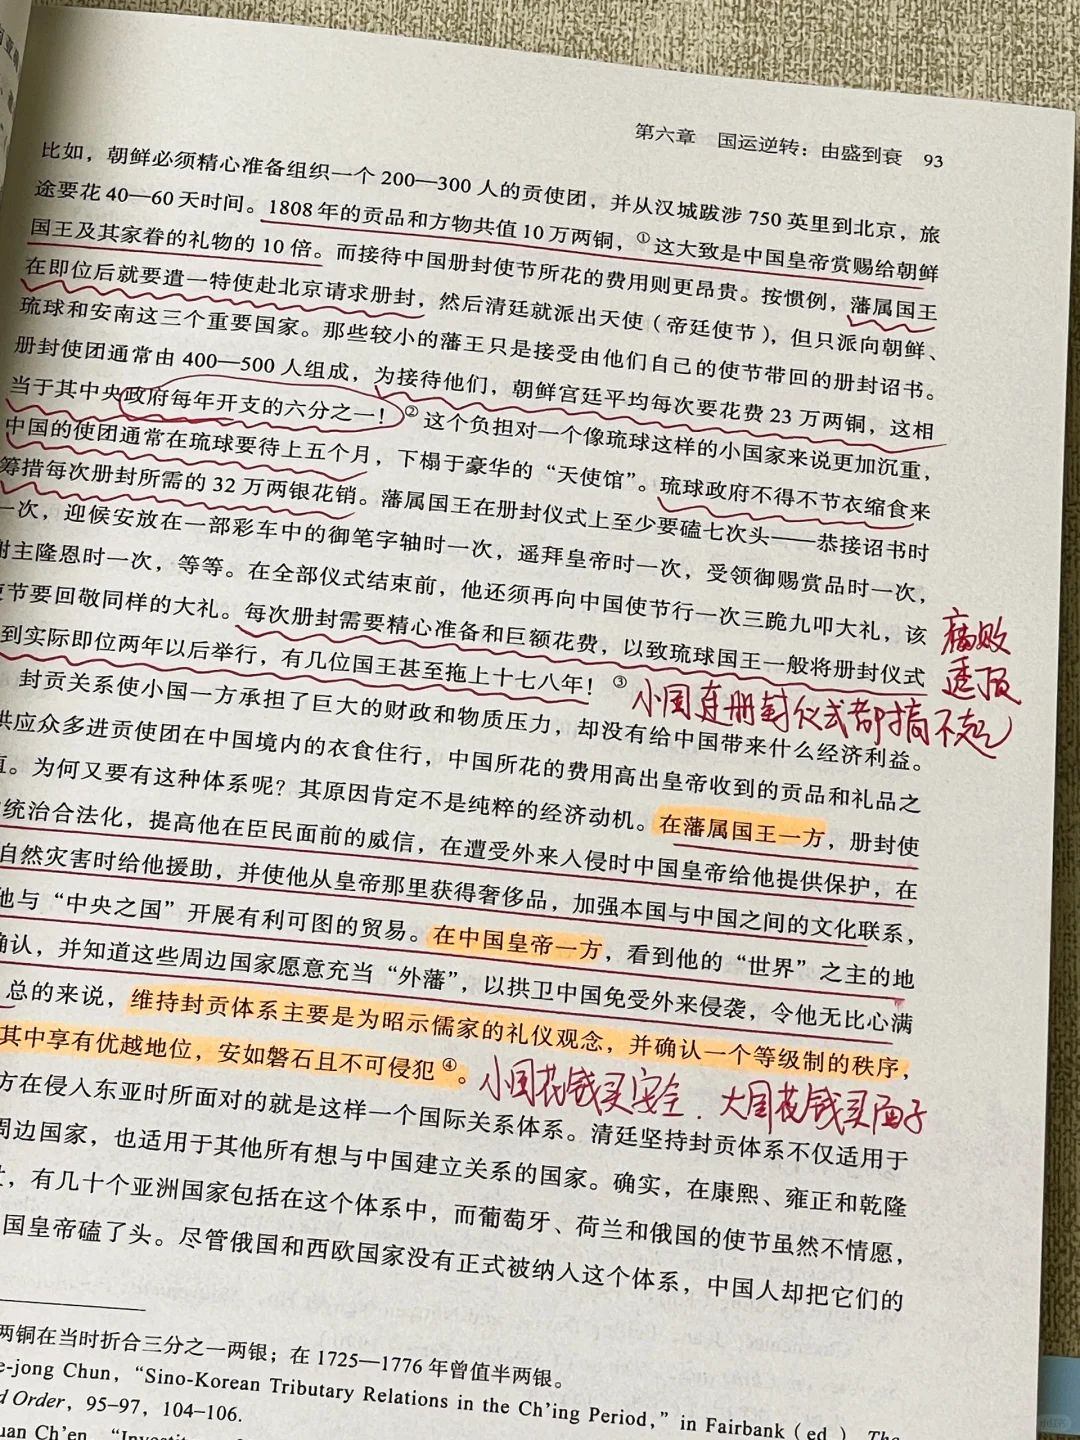 第六章 国运逆转：由盛到衰 93
比如，朝鲜必须精心准备组织一个 200—300 人的贡使团，并从汉城跋涉 750 英里到北京，旅
途要花 40—60 天时间。1808 年的贡品和方物共值 10 万两铜，①这大致是中国皇帝赏赐给朝鲜
国王及其家眷的礼物的 10 倍。而接待中国册封使节所花的费用则更昂贵。按惯例，藩属国王
在即位后就要遣一特使赴北京请求册封，然后清廷就派出天使（帝廷使节），但只派向朝鲜、
琉球和安南这三个重要国家。那些较小的藩王只是接受由他们自己的使节带回的册封诏书。
册封使团通常由 400—500 人组成，为接待他们，朝鲜宫廷平均每次要花费 23 万两铜，这相
当于其中央政府每年开支的六分之一！②这个负担对一个像琉球这样的小国家来说更加沉重，
中国的使团通常在琉球要待上五个月，下榻于豪华的“天使馆”。琉球政府不得不节衣缩食来
筹措每次册封所需的 32 万两银花销。藩属国王在册封仪式上至少要磕七次头——恭接诏书时
一次，迎候安放在一部彩车中的御笔字轴时一次，遥拜皇帝时一次，受领御赐赏品时一次，
谢主隆恩时一次，等等。在全部仪式结束前，他还须再向中国使节行一次三跪九叩大礼，该
使节要回敬同样的大礼。每次册封需要精心准备和巨额花费，以致琉球国王一般将册封仪式
到实际即位两年以后举行，有几位国王甚至拖上十七八年！③
腐败
透顶
小国连册封仪式都搞不起
封贡关系使小国一方承担了巨大的财政和物质压力，却没有给中国带来什么经济利益。
供应众多进贡使团在中国境内的衣食住行，中国所花的费用高出皇帝收到的贡品和礼品之
值。为何又要有这种体系呢？其原因肯定不是纯粹的经济动机。在藩属国王一方，册封使
统治合法化，提高他在臣民面前的威信，在遭受外来入侵时中国皇帝给他提供保护，在
自然灾害时给他援助，并使他从皇帝那里获得奢侈品，加强本国与中国之间的文化联系，
他与“中央之国”开展有利可图的贸易。在中国皇帝一方，看到他的“世界”之主的地
确认，并知道这些周边国家愿意充当“外藩”，以拱卫中国免受外来侵袭，令他无比心满
总的来说，维持封贡体系主要是为昭示儒家的礼仪观念，并确认一个等级制的秩序，
其中享有优越地位，安如磐石且不可侵犯④。
小国花钱买安全．大国花钱买面子
方在侵入东亚时所面对的就是这样一个国际关系体系。清廷坚持封贡体系不仅适用于
周边国家，也适用于其他所有想与中国建立关系的国家。确实，在康熙、雍正和乾隆
，有几十个亚洲国家包括在这个体系中，而葡萄牙、荷兰和俄国的使节虽然不情愿，
国皇帝磕了头。尽管俄国和西欧国家没有正式被纳入这个体系，中国人却把它们的
两铜在当时折合三分之一两银；在 1725—1776 年曾值半两银。
e-jong Chun，“Sino-Korean Tributary Relations in the Ch'ing Period，” in Fairbank（ed.），The
d Order，95–97，104–106.
uan Ch'en，